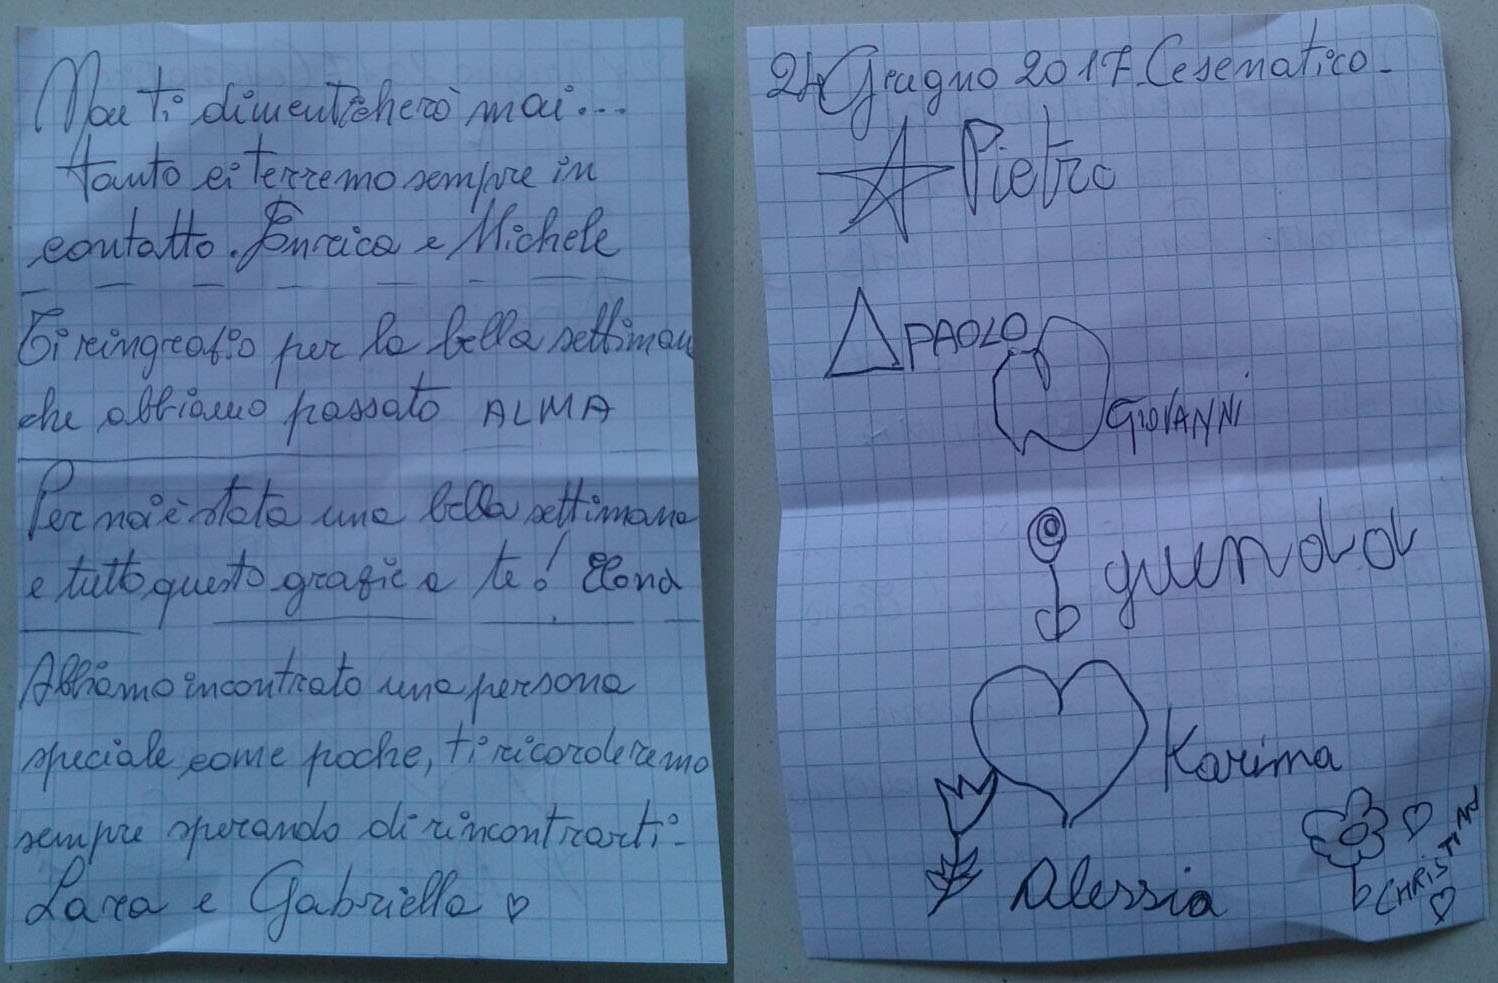 Non ti dimenticherò mai...
tanto ci terremo sempre in
contatto. Enrica e Michele
Ti ringrazio per la bella settiman
che abbiamo passato ALMA
Per noi è stata una bella settimana
e tutto questo grazie a te! Elona
Abbiamo incontrato una persona
speciale come poche, ti ricorderemo
sempre sperando di rincontrarti.
Lara e Gabriella ♡
24 Giugno 2017 Cesenatico -
Pietro
PAOLO
GIOVANNI
Karima
Alessia
CHRISTIAN